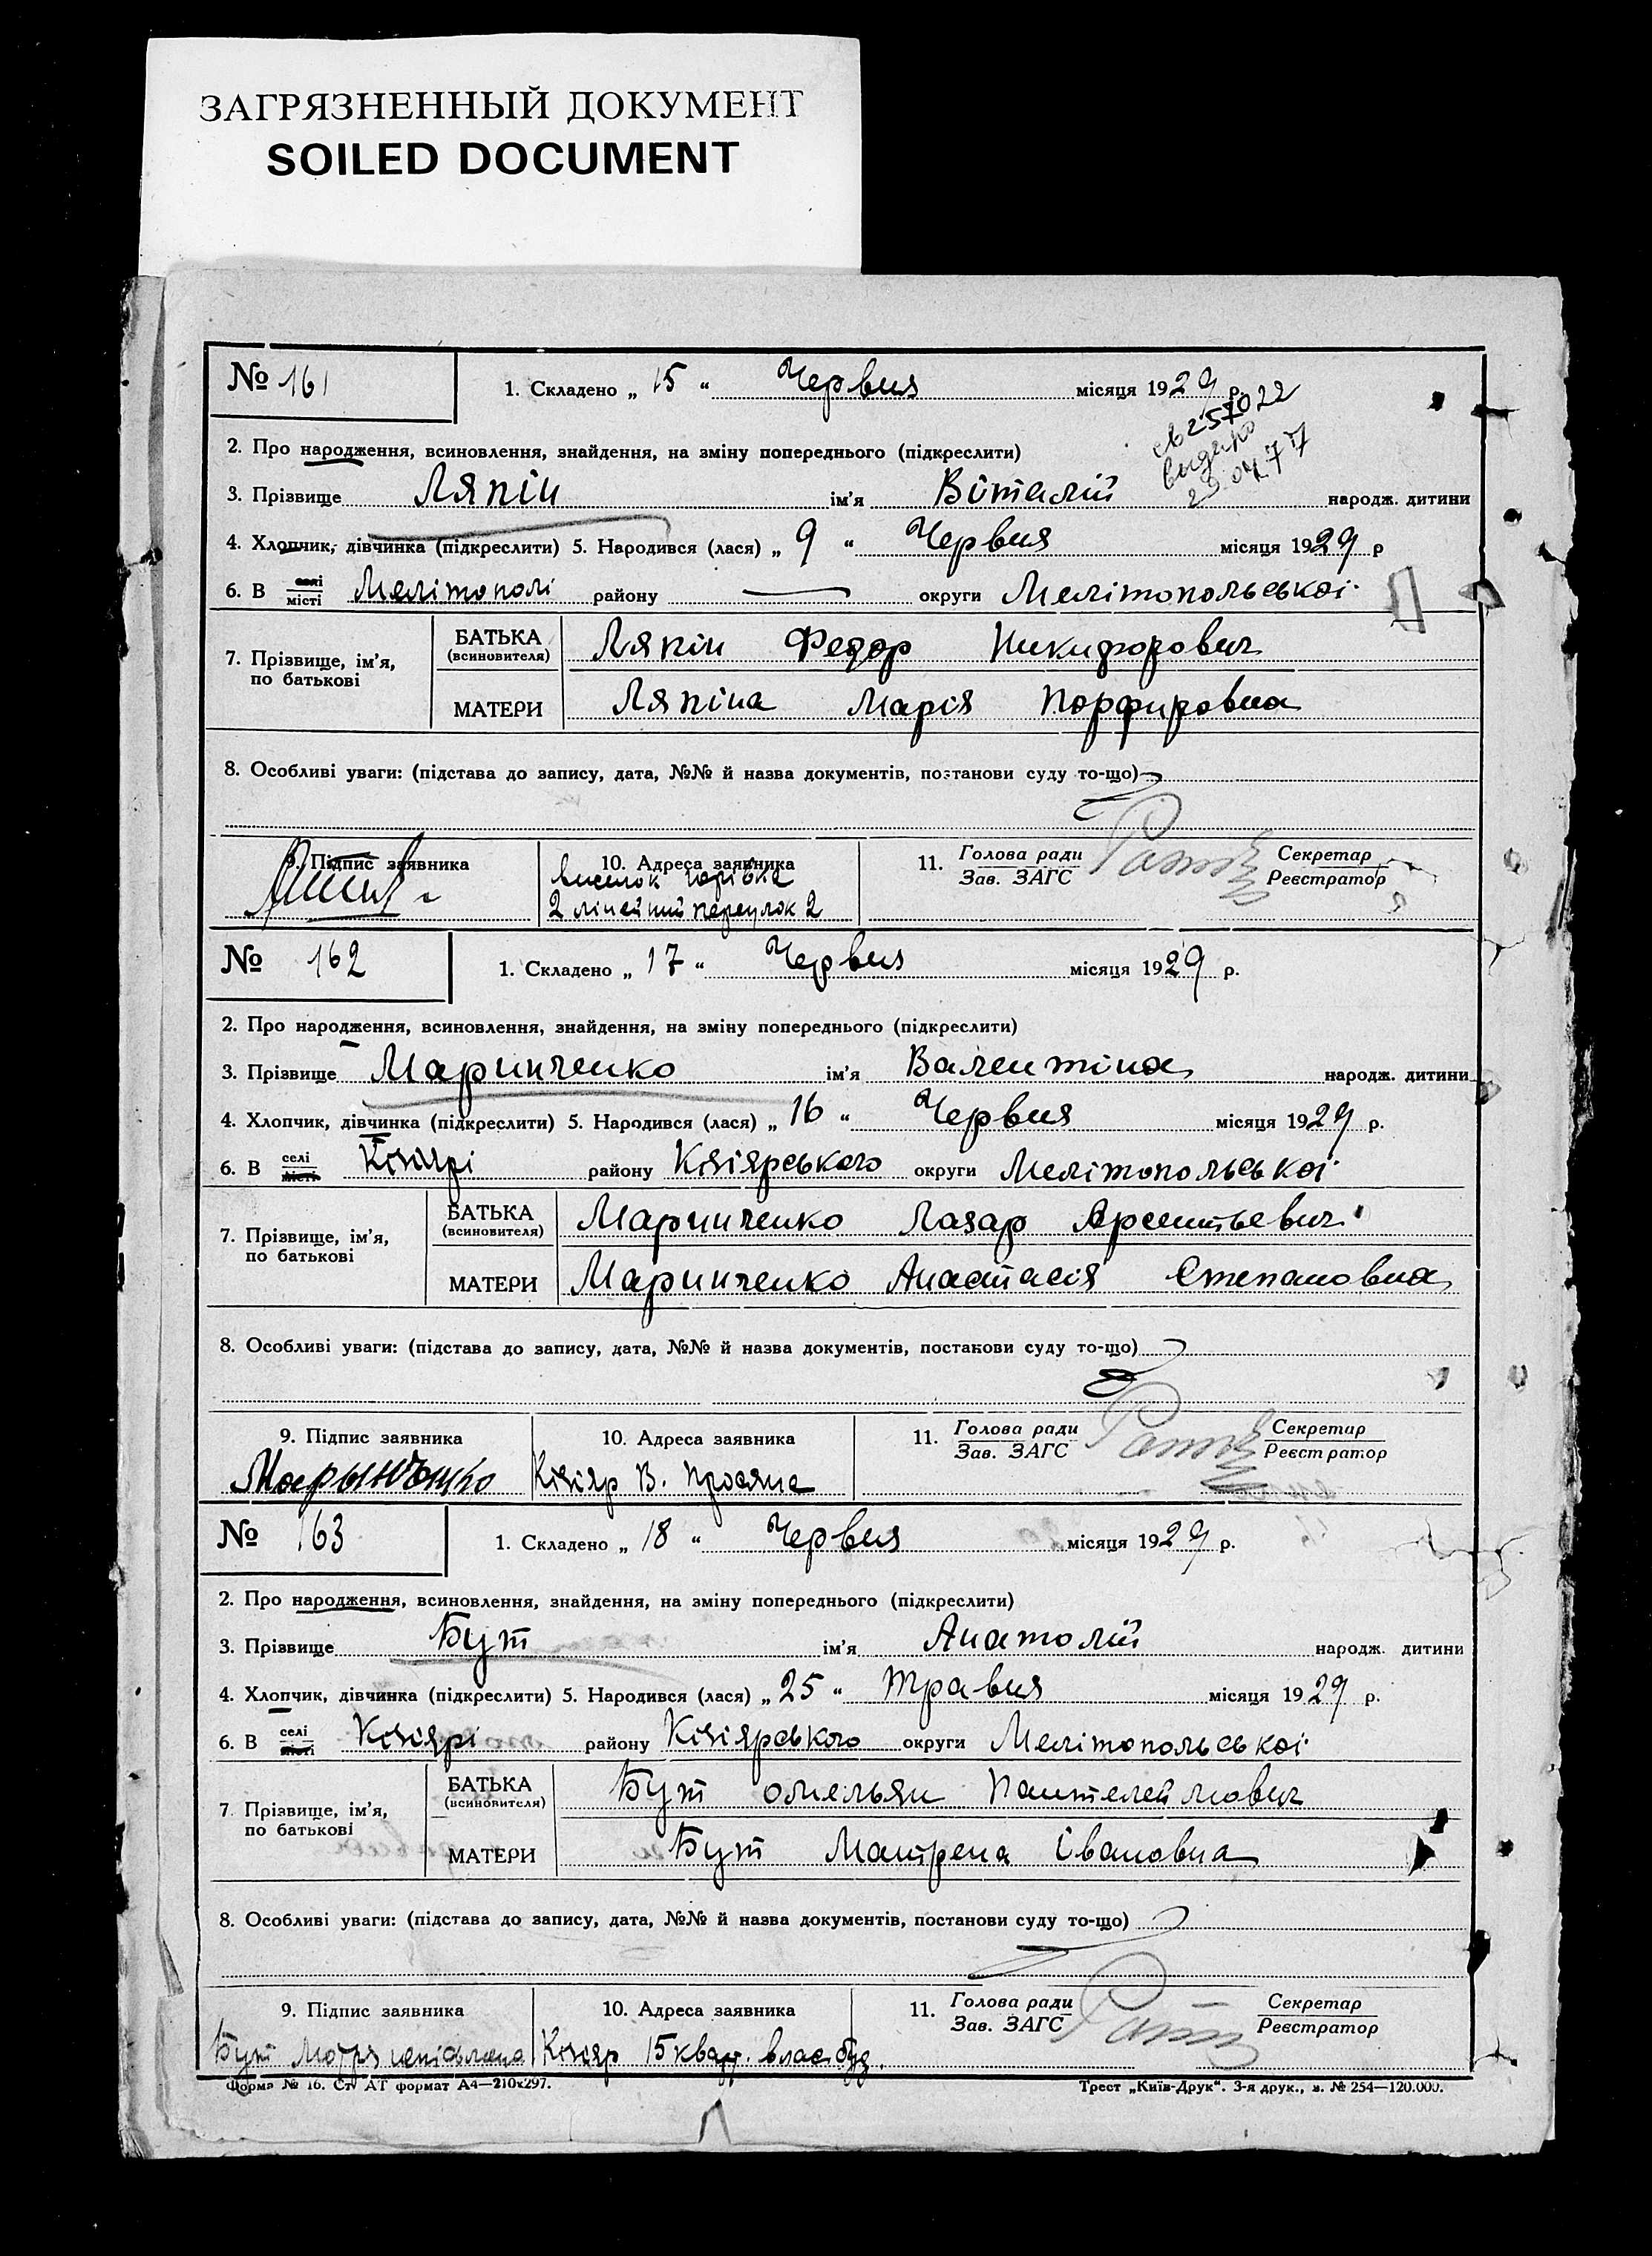 ЗАГРЯЗНЕННЫЙ ДОКУМЕНТ
SOILED DOCUMENT
№ 161
1. Складено „ 15 “ Червня місяця 1929 р.
св 257022
выдано
2. Про народження, всиновлення, знайдення, на зміну попереднього (підкреслити)
3. Прізвище Ляпін ім’я Віталій народж. дитини
4. Хлопчик, дівчинка (підкреслити) 5. Народився (лася) „ 9 “ Червня місяця 1929 р
6. В селі місті Мелітополі району — округи Мелітопольської
7. Прізвище, ім’я, по батькові
БАТЬКА (всиновителя) Ляпін Федор Никифорович
МАТЕРИ Ляпіна Марія Порфировна
8. Особливі уваги: (підстава до запису, дата, №№ й назва документів, постанови суду то-що)
9. Підпис заявника
10. Адреса заявника
виселок
2 лінейний переулок 2
11. Голова ради Зав. ЗАГС Секретар Реєстратор
№ 162
1. Складено „ 17 “ Червня місяця 1929 р.
2. Про народження, всиновлення, знайдення, на зміну попереднього (підкреслити)
3. Прізвище Маринченко ім’я Валентіна народж. дитини
4. Хлопчик, дівчинка (підкреслити) 5. Народився (лася) „ 16 “ Червня місяця 1929 р.
6. В селі місті Кізіярі району Кізіярського округи Мелітопольської
7. Прізвище, ім’я, по батькові
БАТЬКА (всиновителя) Маринченко Лазар Арсентьевич
МАТЕРИ Маринченко Анастасія Степановна
8. Особливі уваги: (підстава до запису, дата, №№ й назва документів, постанови суду то-що)
9. Підпис заявника
10. Адреса заявника
11. Голова ради Зав. ЗАГС Секретар Реєстратор
Марынченко Кізіяр В. Просяне
№ 163
1. Складено „ 18 “ Червня місяця 1929 р.
2. Про народження, всиновлення, знайдення, на зміну попереднього (підкреслити)
3. Прізвище Бут ім’я Анатолій народж. дитини
4. Хлопчик, дівчинка (підкреслити) 5. Народився (лася) „ 25 “ Травня місяця 1929 р.
6. В селі місті Кізіярі району Кізіярського округи Мелітопольської
7. Прізвище, ім’я, по батькові
БАТЬКА (всиновителя) Бут Омельян Пантелеймович
МАТЕРИ Бут Матрена Івановна
8. Особливі уваги: (підстава до запису, дата, №№ й назва документів, постанови суду то-що)
9. Підпис заявника
10. Адреса заявника
11. Голова ради Зав. ЗАГС Секретар Реєстратор
Бут Мотря неписьмена Кізіяр 15 кварт. влас буд.
Форма № 16. Ст АТ формат А4—210х297.
Трест „Київ-Друк“. 3-я друк., з. № 254—120.000.